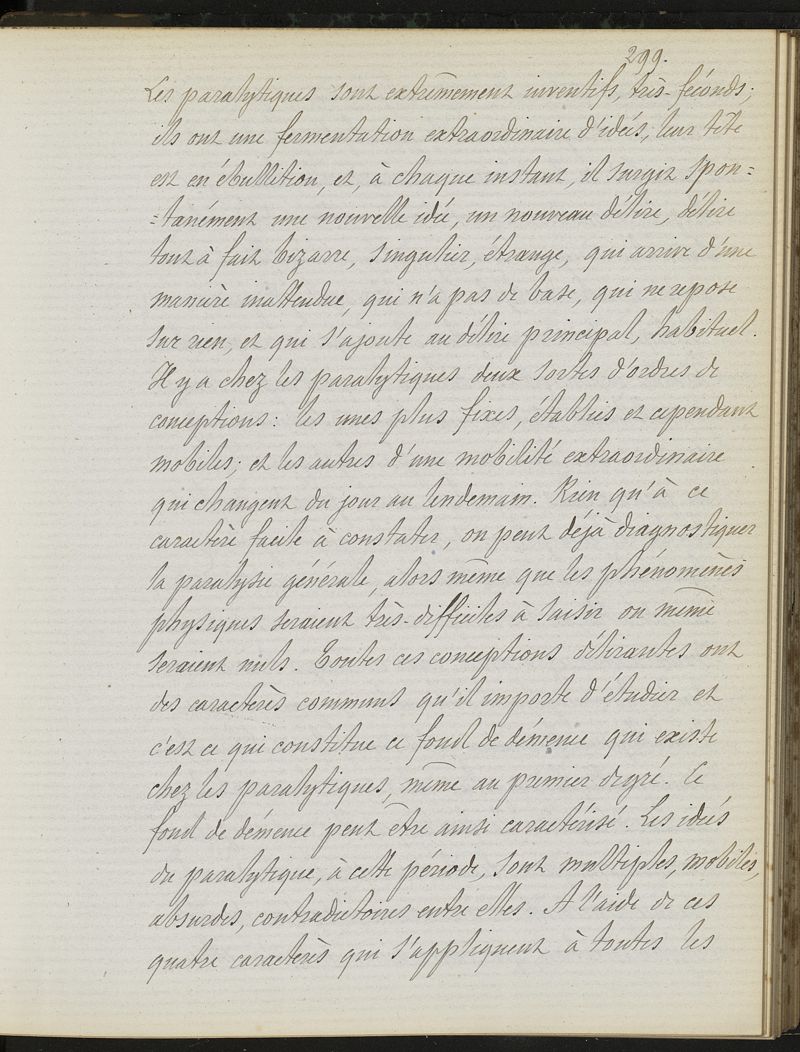 299.
Les paralytiques sont extrêmement inventifs, très-féconds;
ils ont une fermentation extraordinaire d'idées, leur tête
est en ébullition, et, à chaque instant, il surgit spon=
=tanément une nouvelle idée, un nouveau délire, délire
tout à fait bizarre, singulier, étrange, qui arrive d'une
manière inattendue, qui n'a pas de base, qui ne repose
sur rien, et qui s'ajoute au délire principal, habituel.
Il y a chez les paralytiques deux sortes d'ordres de
conceptions: les unes plus fixes, établies et cependant
mobiles; et les autres d'une mobilité extraordinaire
qui changent du jour au lendemain. Rien qu'à ce
caractère facile à constater, on peut déjà diagnostiquer
la paralysie générale, alors même que les phénomènes
physiques seraient très-difficiles à saisir ou même
seraient nuls. Toutes ces conceptions délirantes ont
des caractères communs qu'il importe d'étudier et
c'est ce qui constitue ce fond de démence qui existe
chez les paralytiques, même au premier degré. Ce
fond de démence peut être ainsi caractérisé. Les idées
du paralytique, à cette période, sont multiples, mobiles,
absurdes, contradictoires entre elles. A l'aide de ces
quatre caractères qui s'appliquent à toutes les